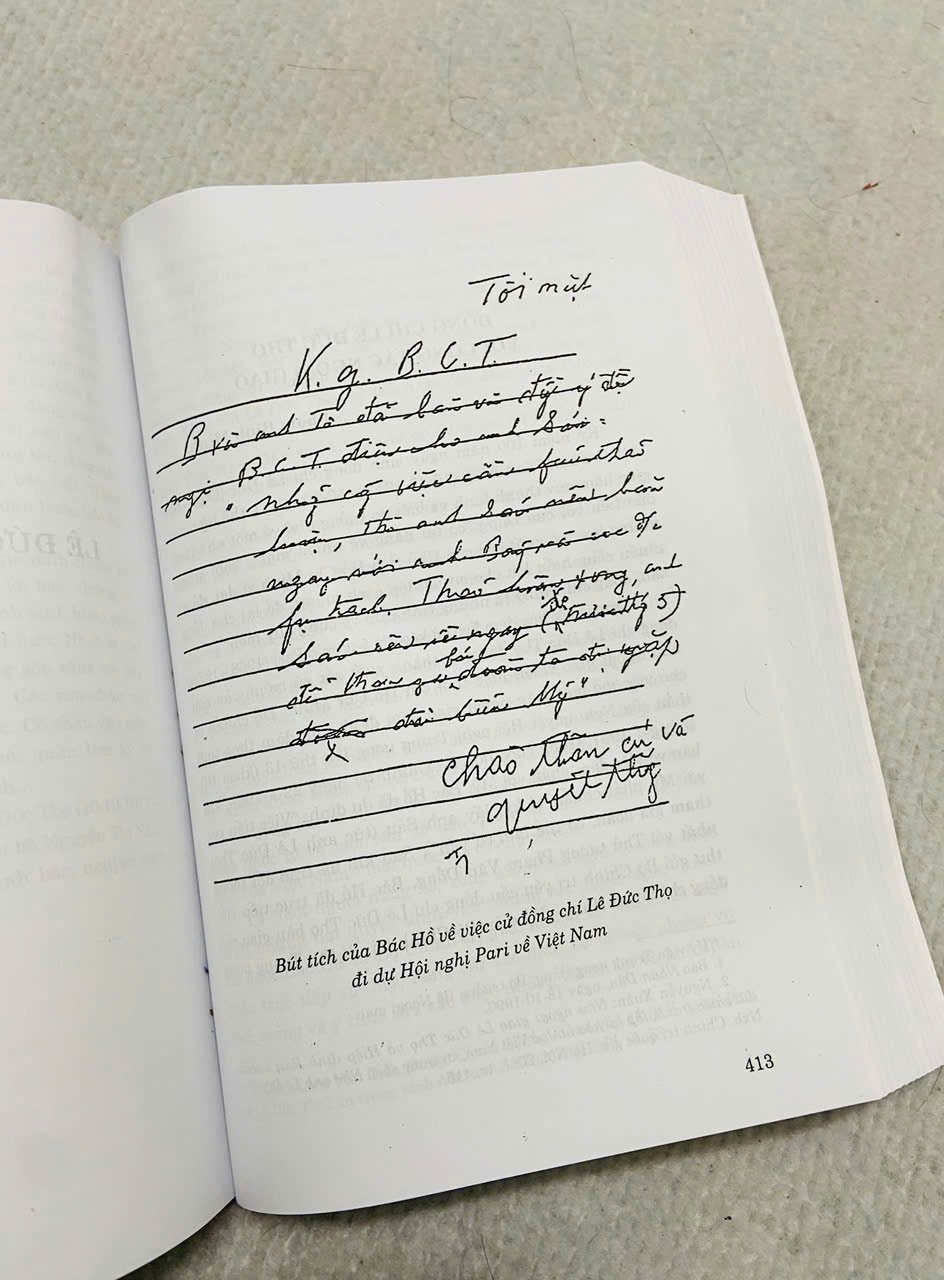 Tối mật
K. g. B. C. T.
B và anh Tô đã bàn và đồng ý đề
nghị B.C.T. điện cho anh Sáu:
"Những cg việc cần fải thảo
luận, thì anh Sáu nên bàn
ngay với anh Bảy và các đ/c
fụ trách. Thảo luận xong, anh
Sáu nên về ngay (độ tháng 5)
để tham gia đoàn ta đi gặp
đại biểu Mỹ"
Chào thân ái và
quyết thg
Bút tích của Bác Hồ về việc cử đồng chí Lê Đức Thọ
đi dự Hội nghị Pari về Việt Nam
413